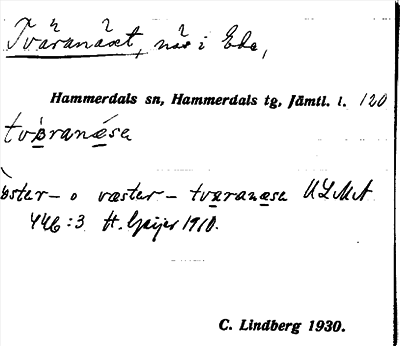 Tväranäset, näs i Ede,
Hammerdals sn, Hammerdals tg, Jämtl. l. 120
tværanæsa
öster- o väster- tværanæsa ULMA
446:3 H. Geijer 1910.
C. Lindberg 1930.